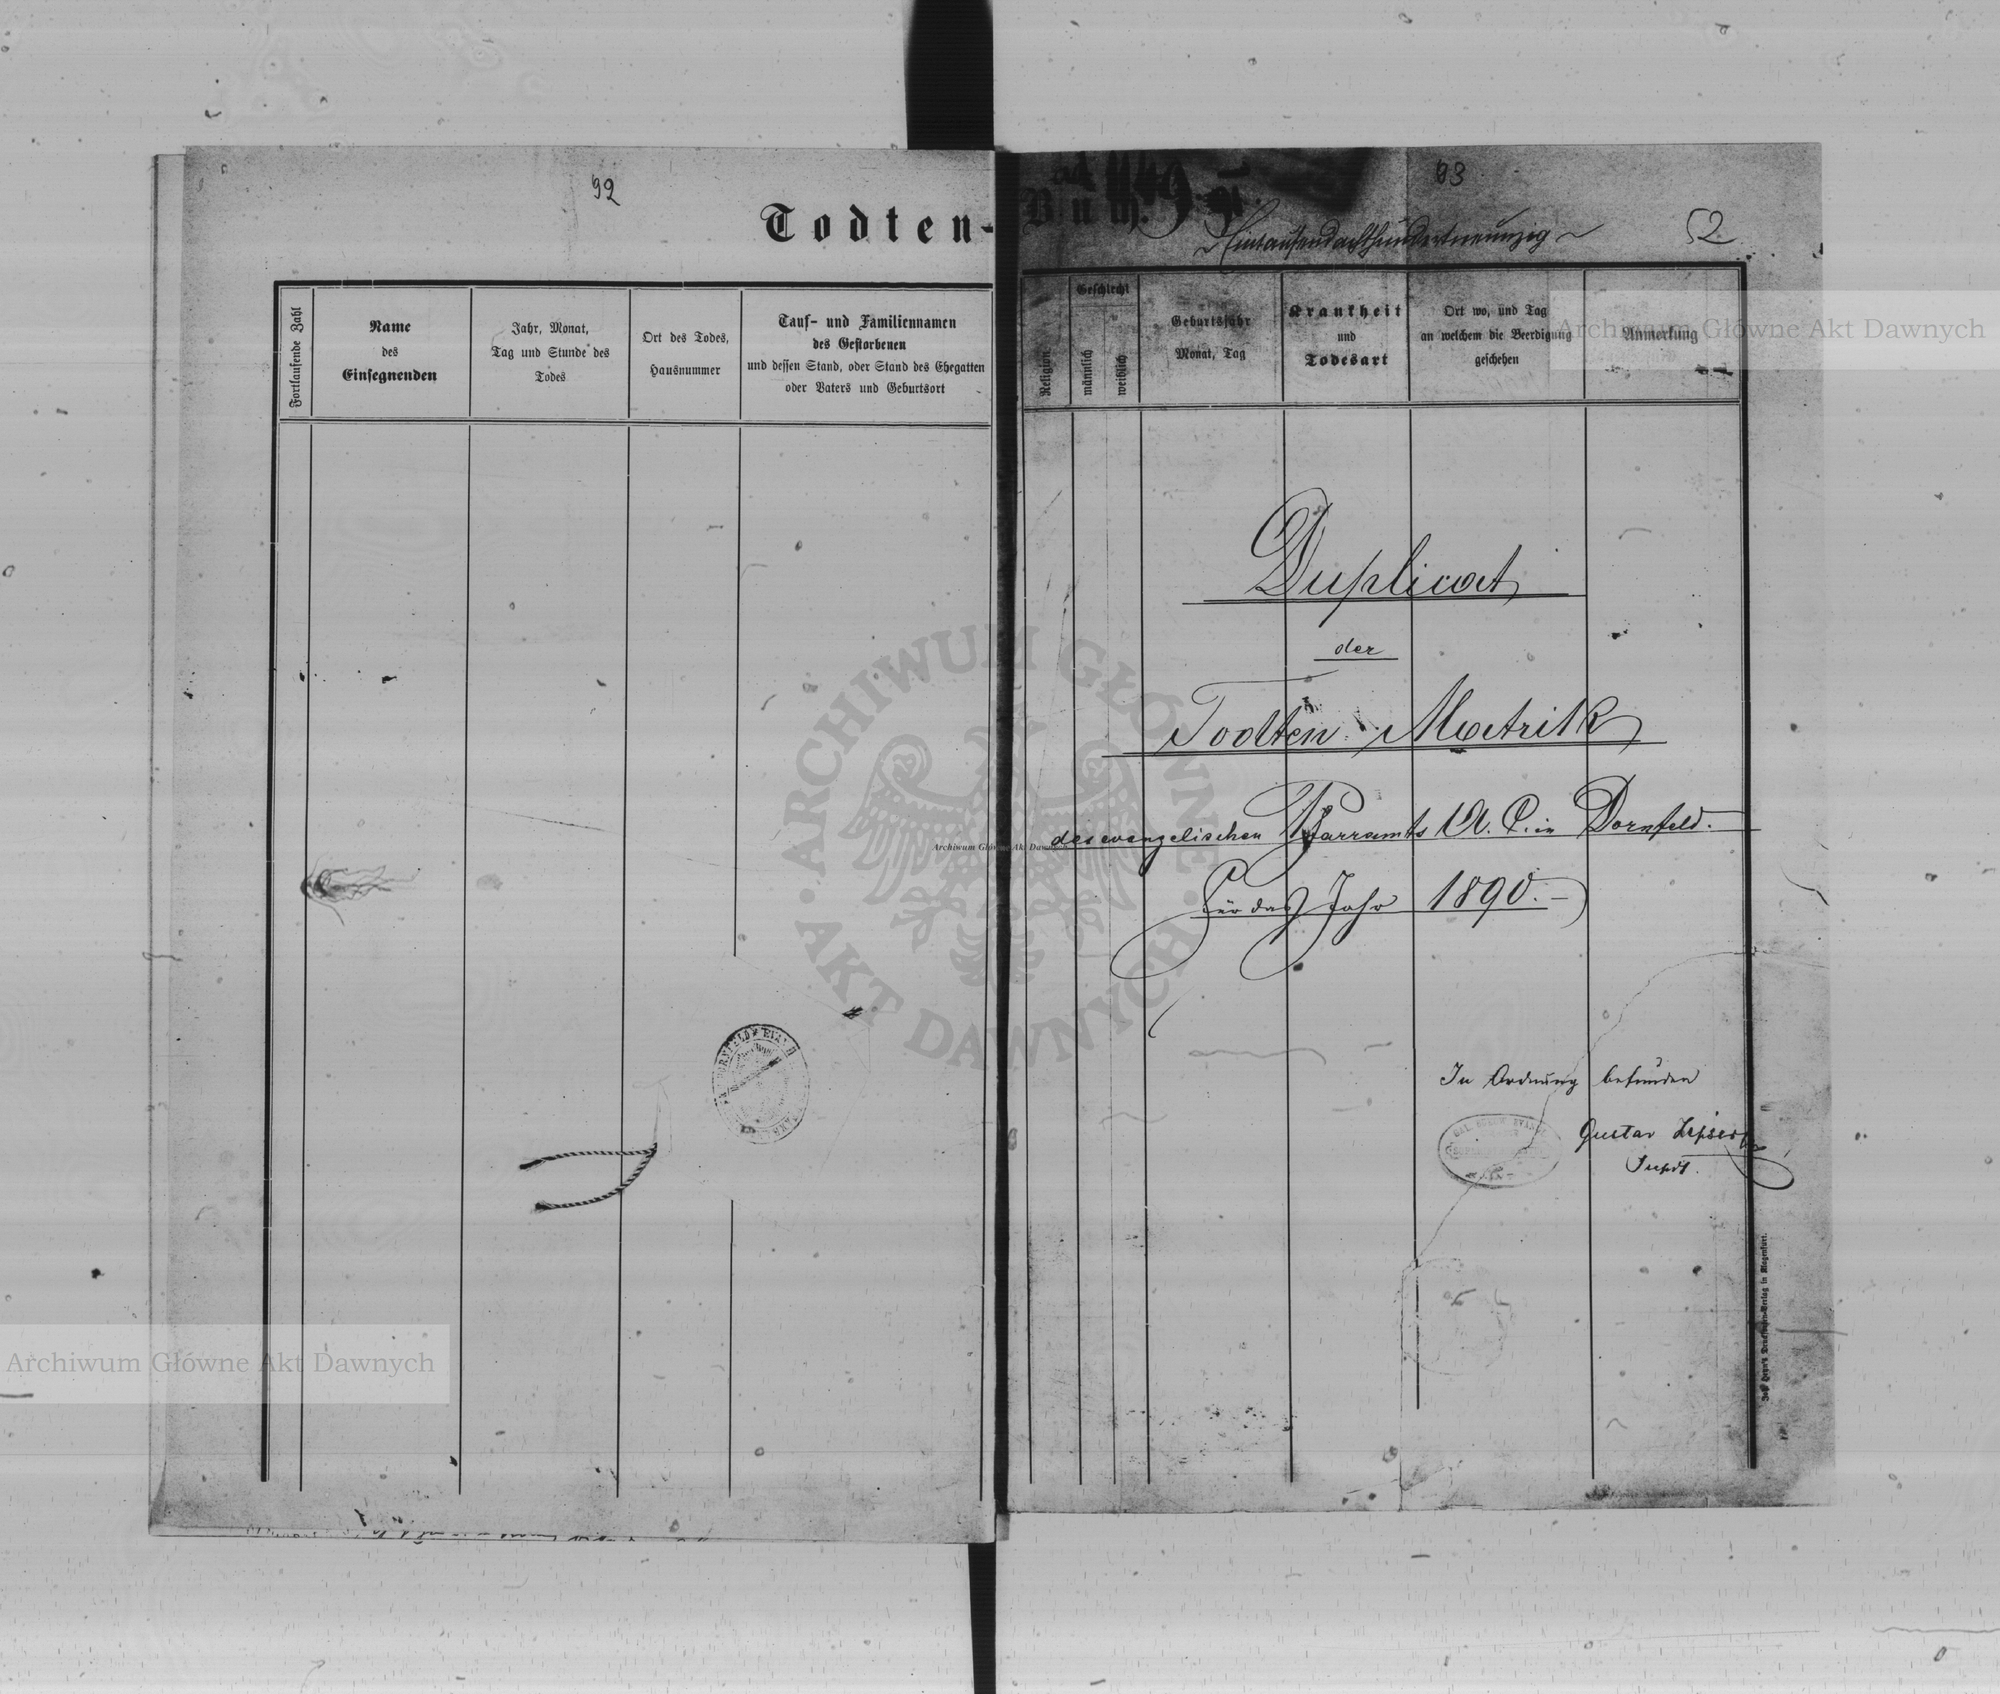 92
Todten-
Fortlaufende Zahl
Name
des
Einsegnenden
Jahr, Monat,
Tag und Stunde des
Todes
Ort des Todes,
Hausnummer
Tauf- und Familiennamen
des Gestorbenen
und dessen Stand, oder Stand des Ehegatten
oder Vaters und Geburtsort
93
Buch.
Eintausendachthundertneunzig
52
Religion
Geschlecht
männlich
weiblich
Geburtsjahr
Monat, Tag
Krankheit
und
Todesart
Ort wo, und Tag
an welchem die Beerdigung
geschehen
Anmerkung
Archiwum Główne Akt Dawnych
Duplicat
der
Todten-Matrik
des evangelischen Pfarramts A. C. in Dornfeld.
Für das Jahr 1890.
ARCHIWUM GŁÓWNE
AKT DAWNYCH
Archiwum Główne Akt Dawnych
In Ordnung befunden
Gustav
Supdt.
Archiwum Główne Akt Dawnych